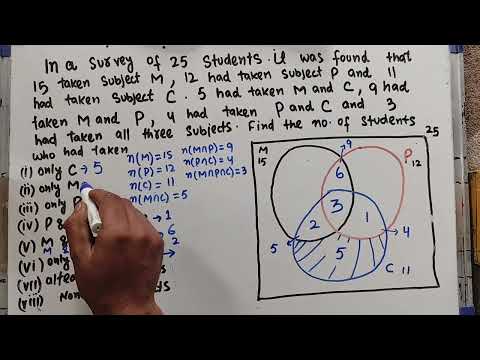 In a survey of 25 students it was found that
15 taken subject M, 12 had taken subject P and 11
had taken subject C. 5 had taken M and C, 9 had
taken M and P, 4 had taken P and C and 3
had taken all three subjects. Find the no. of students
who had taken
(i) only C → 5
(ii) only M
(iii) only P
(iv) P &
(v) M &
(vi) only
(vii) atleast
(viii) None
→ 1
→ 6
2
n(M) = 15
n(P) = 12
n(C) = 11
n(M∩C) = 5
n(M∩P) = 9
n(P∩C) = 4
n(M∩P∩C) = 3
25
M
15
9
P
12
6
3
2
1
5
5
4
C 11